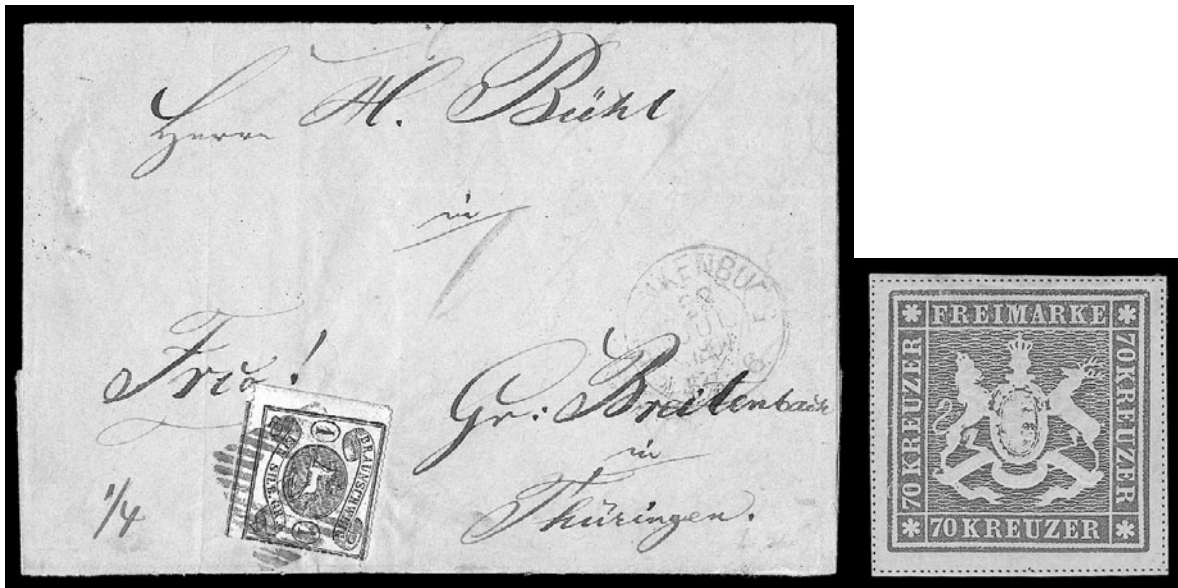 Herrn H. Bühl
in
Frco!
Gr: Breitenbach
in
Thüringen.
1/4
1
BRAUNSCHWEIG
FREIMARKE
70 KREUZER
70 KREUZER
70 KREUZER